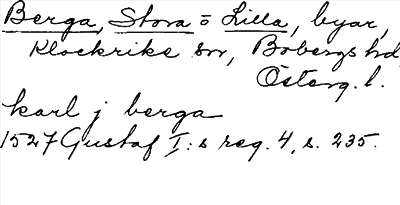 Berga, Stora o Lilla, byar,
Klockrike sn, Bobergs hd
Österg. l.
karl j berga
1527 Gustaf I:s reg. 4, s. 235.